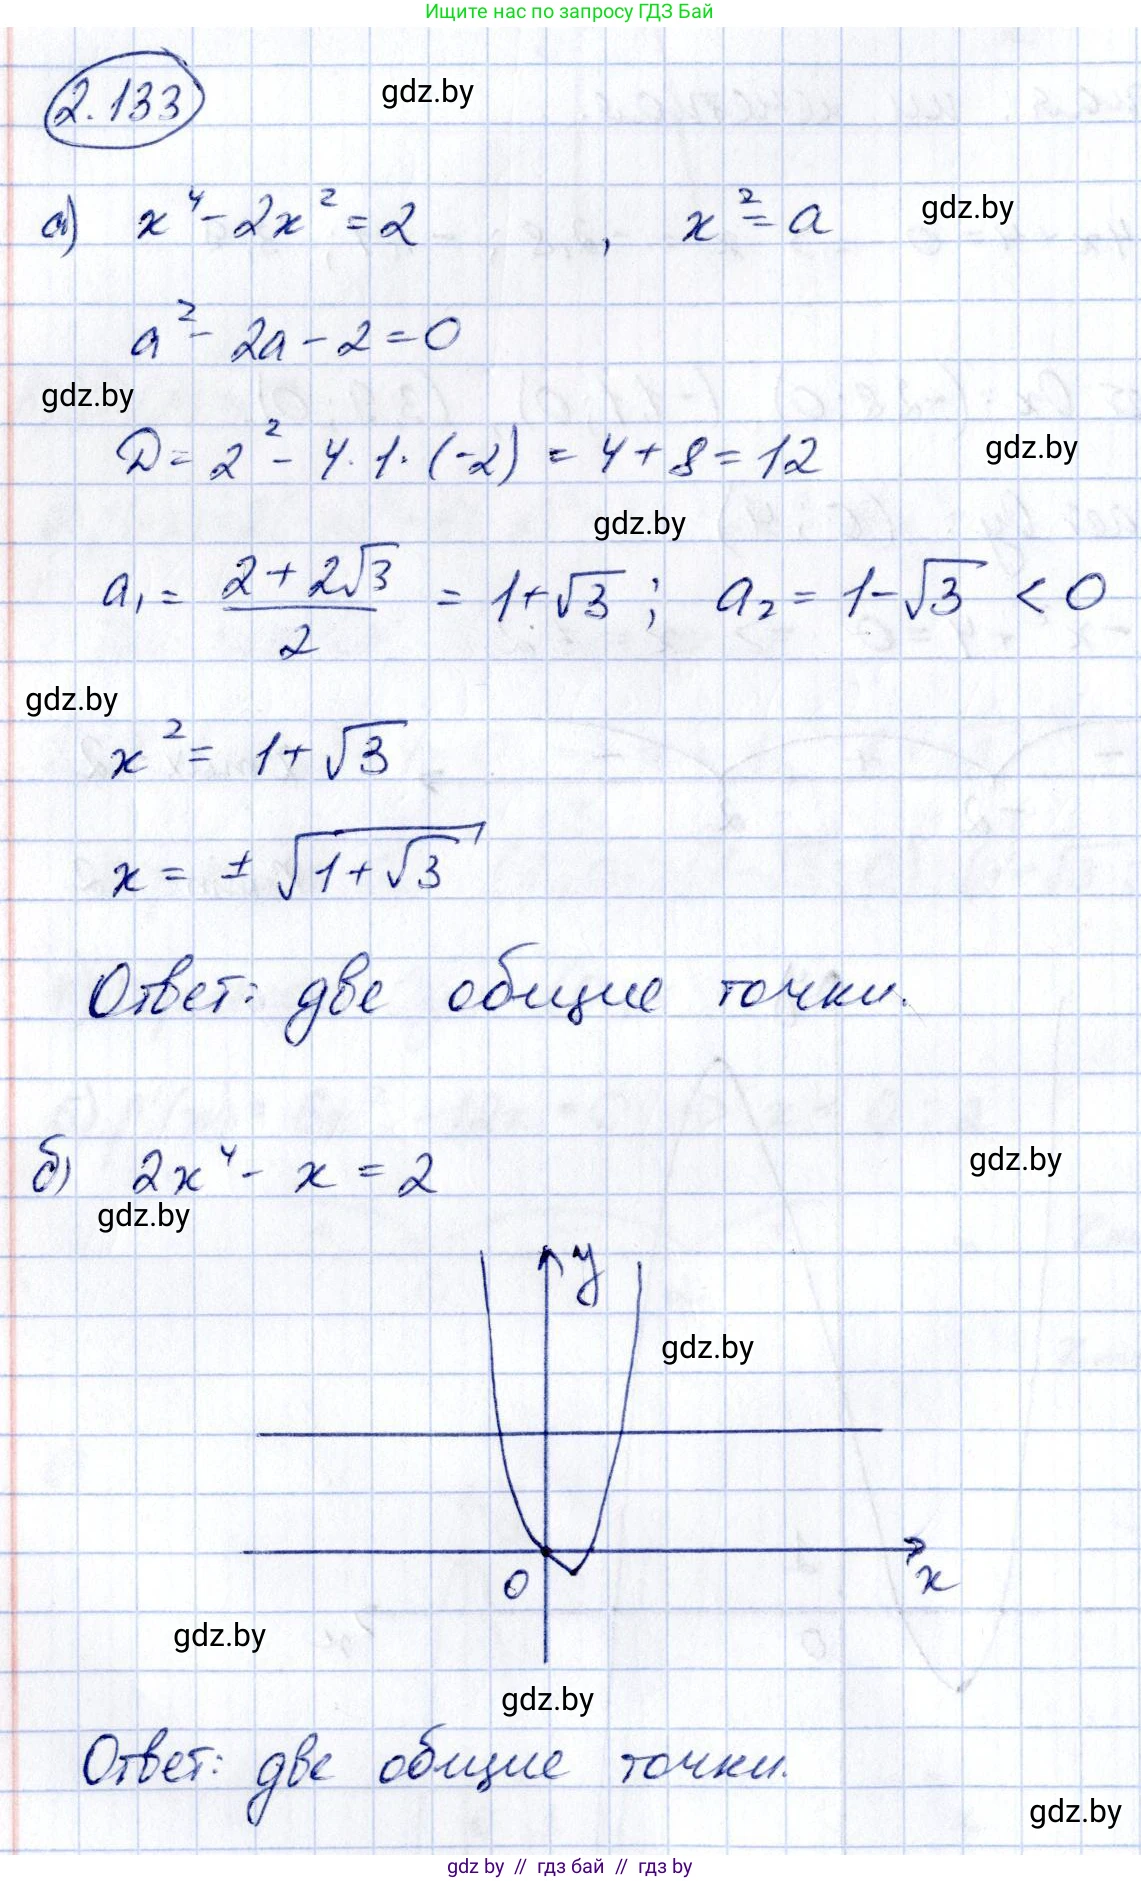 Ищите нас по запросу ГДЗ Бай
2.133
gdz.by
а) x⁴ - 2x² = 2 , x² = a
gdz.by
a² - 2a - 2 = 0
gdz.by
D = 2² - 4·1·(-2) = 4 + 8 = 12
gdz.by
gdz.by
a₁ = (2 + 2√3)/2 = 1+√3 ; a₂ = 1-√3 < 0
gdz.by
x² = 1+√3
x = ± √(1+√3)
Ответ: две общие точки.
б) 2x⁴ - x = 2
gdz.by
gdz.by
y
gdz.by
0
x
gdz.by
gdz.by
Ответ: две общие точки.
gdz.by
gdz by // гдз бай // гдз by